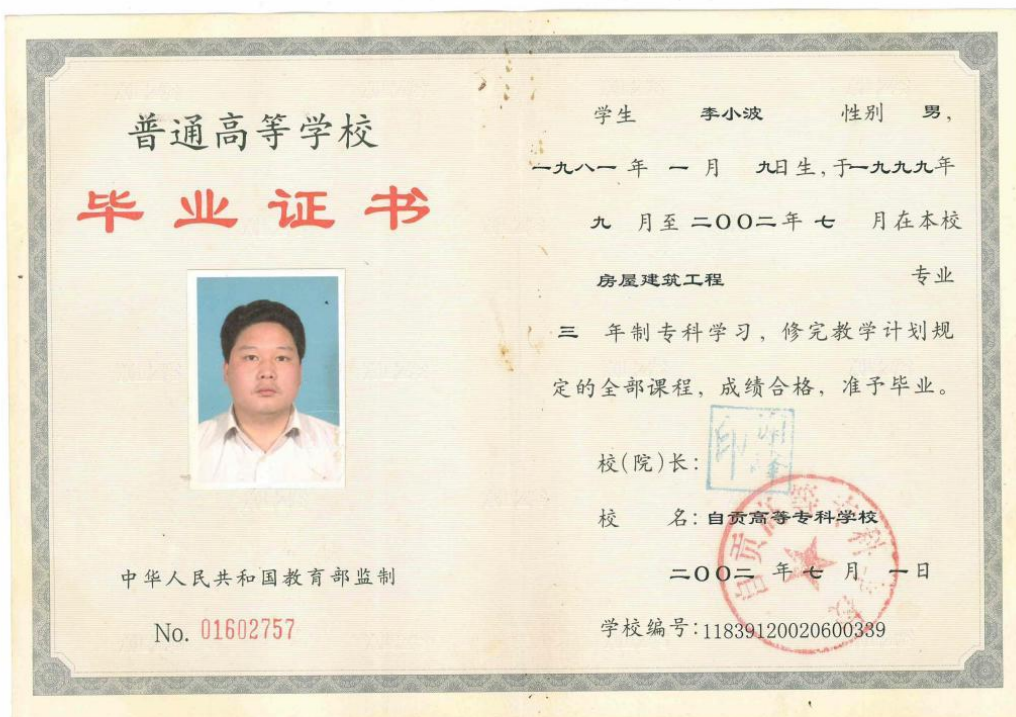 普通高等学校
毕业证书
中华人民共和国教育部监制
No. 01602757
学生 李小波 性别 男,
一九八一年 一月 九日生,于一九九九年
九 月至 二00二年 七 月在本校
房屋建筑工程 专业
三 年制专科学习,修完教学计划规
定的全部课程,成绩合格,准予毕业。
校(院)长:
校 名:自贡高等专科学校
二00二 年 七 月 一日
学校编号:11839120020600339
自贡高等专科学校